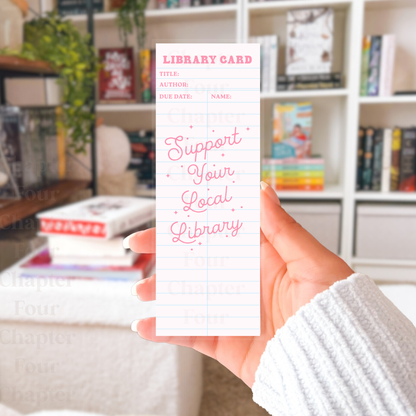 LIBRARY CARD
TITLE:
AUTHOR:
DUE DATE: NAME:
Support
Your
Local
Library
Chapter
Four
Chapter
Four
Chapter